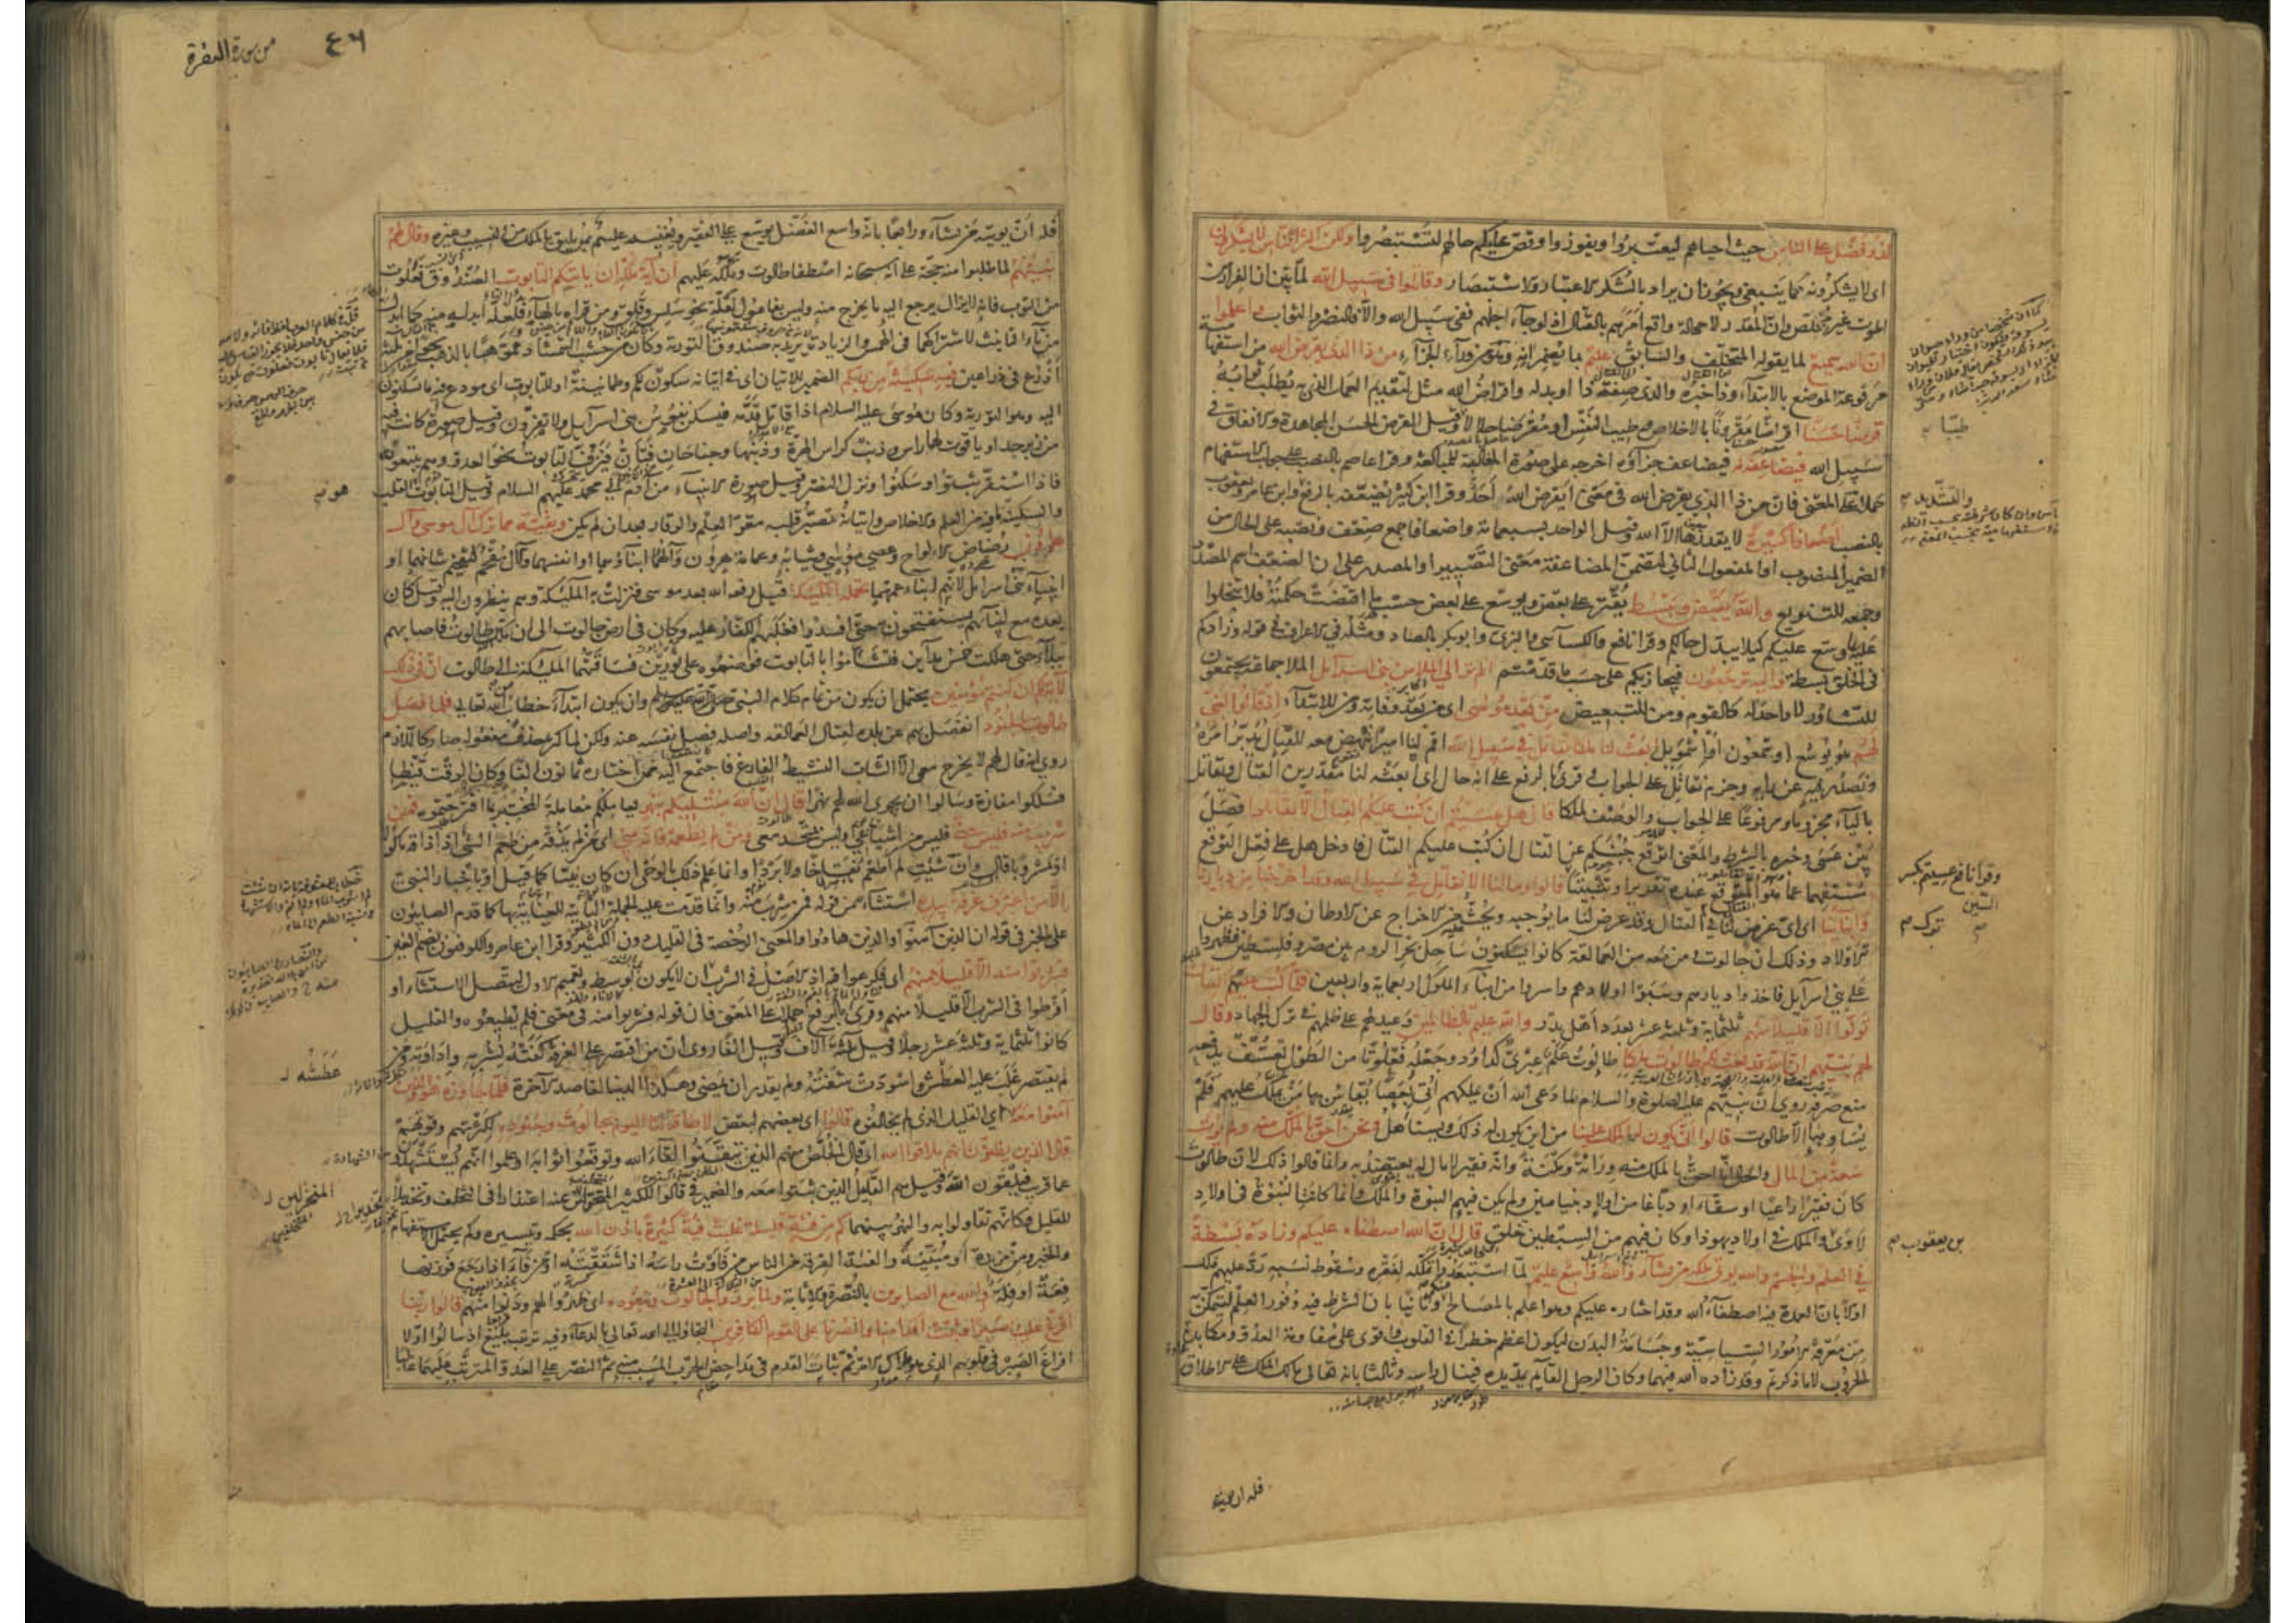 لذو فضل على الناس حيث احياهم ليعتبروا ويفوزوا وقص عليكم حالهم لتستبصروا ولكن اكثر الناس لا يشكرون
اى لا يشكرونه كما ينبغى ويجوز ان يراد بالشكر الاعتبار والاستبصار وقاتلوا فى سبيل الله لما بين ان الفرار من
الموت غير مخلص وان المقدر لا محالة واقع امرهم بالقتال اذ لو جاء اجلهم ففى سبيل الله والا فالنصر والثواب واعلموا
ان الله سميع لما يقوله المتخلف والسابق عليم بما يضمرانه وهو من وراء الجزاء من ذا الذى يقرض الله من استفهامية
مرفوعة الموضع بالابتداء وذا خبره والذى صفة ذا او بدله واقراض الله مثل لتقديم العمل الذى به يطلب ثوابه
قرضا حسنا اقراضا مقرونا بالاخلاص وطيب النفس او مقرضا حلالا وقيل القرض الحسن المجاهدة والانفاق فى
سبيل الله فيضاعفه له فيضاعف جزاؤه اخرجه على صورة المغالبة للمبالغة وقرا عاصم بالنصب على جواب الاستفهام
حملا على المعنى فان من ذا الذى يقرض الله فى معنى ايقرض الله احد وقرا ابن كثير يضعفه بالرفع وابن عامر ويعقوب
بالنصب اضعافا كثيرة لا يقدرها الا الله وقيل الواحد بسبعمائة واضعافا جمع ضعف ونصبه على الحال من
الضمير المنصوب او المفعول الثانى لتضمن المضاعفة معنى التصيير او المصدر على ان الضعف اسم المصدر
وجمعه للتنويع والله يقبض ويبسط يقتر على بعض ويوسع على بعض حسب ما اقتضت حكمته فلا تبخلوا
عليه بما وسع عليكم كيلا يبدل حالكم وقرا نافع والكسائى والبزى وابو بكر بالصاد ومثله فى الاعراف فى قوله وزادكم
فى الخلق بسطة واليه ترجعون فيجازيكم على حسب ما قدمتم الم تر الى الملا من بنى اسرائيل الملا جماعة يجتمعون
للتشاور لا واحد له كالقوم ومن للتبعيض من بعد موسى اى من بعد وفاته ومن للابتداء اذ قالوا لنبى
لهم هو يوشع او شمعون او اشمويل ابعث لنا ملكا نقاتل فى سبيل الله اقم لنا اميرا ننهض معه للقتال يدبر امره
ونصدر فيه عن رايه وجزم نقاتل على الجواب وقرئ بالرفع على انه حال اى ابعثه لنا مقدرين القتال ويقاتل
بالياء مجزوما ومرفوعا على الجواب والوصف لملكا قال هل عسيتم ان كتب عليكم القتال الا تقاتلوا فصل
بين عسى وخبره بالشرط والمعنى اتوقع جبنكم عن القتال ان كتب عليكم القتال فادخل هل على فعل التوقع
مستفهما عما هو المتوقع عنده تقريرا وتثبيتا قالوا وما لنا الا نقاتل فى سبيل الله وقد اخرجنا من ديارنا
وابنائنا اى اى غرض لنا فى القتال وقد عرض لنا ما يوجبه ويحث عليه من الاخراج عن الاوطان والافراد عن
الاولاد وذلك ان جالوت ومن معه من العمالقة كانوا يسكنون ساحل بحر الروم بين مصر وفلسطين فظهروا
على بنى اسرائيل فاخذوا ديارهم وسبوا اولادهم واسروا من ابناء الملوك اربعمائة واربعين فلما كتب عليهم القتال
تولوا الا قليلا منهم ثلثمائة وثلثة عشر بعدد اهل بدر والله عليم بالظالمين وعيد لهم على ظلمهم فى ترك الجهاد وقال
لهم نبيهم ان الله قد بعث لكم طالوت ملكا طالوت علم عبرى كداود وجعله فعلوتا من الطول تعسف يدفعه
منع صرفه روى ان نبيهم عليه الصلوة والسلام لما دعى الله ان يملكهم اتى بعصا يقاس بها من يملك عليهم فلم
يساوها الا طالوت قالوا انى يكون له الملك علينا من اين يكون له ذلك ويستاهل ونحن احق بالملك منه ولم يؤت
سعة من المال والحال انا احق بالملك منه وراثة ومكنة وانه فقير لا مال له يعتضد به وانما قالوا ذلك لان طالوت
كان فقيرا راعيا او سقاء او دباغا من اولاد بنيامين ولم يكن فيهم النبوة والملك وانما كانت النبوة فى اولاد
لاوى والملك فى اولاد يهوذا وكان فيهم من السبطين خلق قال ان الله اصطفاه عليكم وزاده بسطة
فى العلم والجسم والله يؤتى ملكه من يشاء والله واسع عليم لما استبعدوا تملكه لفقره وسقوط نسبه رد عليهم ذلك
اولا بان العمدة فيه اصطفاء الله وقد اختاره عليكم وهو اعلم بالمصالح وثانيا بان الشرط فيه وفور العلم ليتمكن
من معرفة الامور السياسية وجسامة البدن ليكون اعظم خطرا فى القلوب واقوى على مقاومة العدو ومكابدة
الحروب لا ما ذكرتم وقد زاده الله فيهما وكان الرجل القائم يمد يده فينال راسه وثالثا بانه تعالى مالك الملك على الاطلاق
طيبا
والتشديد
وقرا نافع عسيتم بكسر
السين
ترك
بن يعقوب
فله ان يؤتيه
من سورة البقرة
٤٦
فله ان يؤتيه من يشاء ورابعا بانه واسع الفضل يوسع على الفقير ويغنيه عليم بمن يليق بالملك من النسيب وغيره وقال لهم
نبيهم لما طلبوا منه حجة على انه سبحانه اصطفا طالوت وملكه عليهم ان اية ملكه ان ياتيكم التابوت الصندوق فعلوت
من التوب فانه لا يزال يرجع اليه ما يخرج منه وليس بفاعول لقلة نحو سلس وقلق ومن قراه بالهاء فلعله ابدله منه كما ابدل
من تاء التانيث لاشتراكهما فى الهمس والزيادة يريد به صندوق التورية وكان من خشب الشمشاد مموها بالذهب نحوا من ثلثة
اذرع فى ذراعين فيه سكينة من ربكم الضمير للاتيان اى فى اتيانه سكون لكم وطمانينة او للتابوت اى مودع فيه ما تسكنون
اليه وهو التورية وكان موسى عليه السلام اذا قاتل قدمه فيسكن نفوس بنى اسرائيل ولا يفرون وقيل صورة كانت فيه
من زبرجد او ياقوت لها راس وذنب كراس الهرة وذنبها وجناحان فتئن فيزف التابوت نحو العدو وهم يتبعونه
فاذا استقر ثبتوا وسكنوا ونزل النصر وقيل صورة الانبياء من ادم الى محمد عليهم السلام وقيل التابوت القلب
والسكينة ما فيه من العلم والاخلاص واتيانه تصير قلبه مقر العلم والوقار بعد ان لم يكن وبقية مما ترك آل موسى وآل
هرون رضاض الالواح وعصى موسى وثيابه وعمامة هرون وآلهما ابناؤهما او انفسهما والآل مقحم لتفخيم شانهما او
انبياء بنى اسرائيل لانهم ابناء عمهما تحمله الملئكة قيل رفعه الله بعد موسى فنزلت به الملئكة وهم ينظرون اليه وقيل كان
بعده مع انبيائهم يستفتحون به حتى افسدوا فغلبهم الكفار عليه وكان فى ارض جالوت الى ان ملك طالوت فاصابهم
بلاء حتى هلكت خمس مداين فتشاموا بالتابوت فوضعوه على ثورين فساقتهما الملئكة الى طالوت ان فى ذلك
لاية لكم ان كنتم مؤمنين يحتمل ان يكون من تمام كلام النبى صلى الله عليه وسلم وان يكون ابتداء خطاب من الله تعالى فلما فصل
طالوت بالجنود انفصل بهم عن بلده لقتال العمالقة واصله فصل نفسه عنه ولكن لما كثر حذف مفعوله صار كاللازم
روى انه قال لهم لا يخرج معى الا الشاب النشيط الفارغ فاجتمع اليه ممن اختاره ثمانون الفا وكان الوقت قيظا
فسلكوا مفازة وسالوا ان يجرى الله لهم نهرا قال ان الله مبتليكم بنهر يعاملكم معاملة المختبر بما اقترحتموه فمن
شرب منه فليس منى فليس من اشياعى او ليس بمتحد معى ومن لم يطعمه فانه منى اى من لم يذقه من طعم الشى اذا ذاقه ماكولا
او مشروبا قال وان شئت لم اطعم نقاخا ولا بردا وانما علم ذلك بالوحى ان كان نبيا كما قيل او باخبار النبى
الا من اغترف غرفة بيده استثناء من قوله فمن شرب منه وانما قدمت عليه الجملة الثانية للعناية بها كما قدم الصابئون
على الخبر فى قوله ان الذين آمنوا والذين هادوا والمعنى الرخصة فى القليل دون الكثير وقرا ابن عامر والكوفيون بضم الغين
فشربوا منه الا قليلا منهم اى فكرعوا فيه اذ الاصل فى الشرب ان لا يكون بوسط وتعميم الاول ليتصل الاستثناء او
افرطوا فى الشرب الا قليلا منهم وقرئ بالرفع حملا على المعنى فان قوله فشربوا منه فى معنى فلم يطيعوه والقليل
كانوا ثلثمائة وثلثة عشر رجلا وقيل ثلثة آلاف وقيل الفا روى ان من اقتصر على الغرفة كفته لشربه واداوته ومن
لم يقتصر غلب عليه العطش واسودت شفته ولم يقدر ان يمضى وهكذا الدنيا لقاصد الآخرة فلما جاوزه هو والذين
آمنوا معه اى القليل الذى لم يخالفوه قالوا اى بعضهم لبعض لا طاقة لنا اليوم بجالوت وجنوده لكثرتهم وقوتهم
قال الذين يظنون انهم ملاقوا الله اى قال الخلص منهم الذين تيقنوا لقاء الله وتوقعوا ثوابه او علموا انهم يستشهدون
عما قريب فيلقون الله وقيل هم القليل الذين ثبتوا معه والضمير فى قالوا للكثير المنخزلين عنه اعتذارا فى التخلف وتخذيلا
للقليل فكانهم تقاولوا به والنهر بينهما كم من فئة قليلة غلبت فئة كثيرة باذن الله بحكمه وتيسيره وكم يحتمل الاستفهام
والخبر ومن مزيدة او مبينة والفئة الفرقة من الناس من فاوت راسه اذا شققته او من فاء اذا رجع فوزنها
فعة او فلة والله مع الصابرين بالنصرة والاثابة ولما برزوا لجالوت وجنوده اى ظهروا لهم ودنوا منهم قالوا ربنا
افرغ علينا صبرا وثبت اقدامنا وانصرنا على القوم الكافرين التجاوا الى الله تعالى بالدعاء وفيه ترتيب بليغ اذ سالوا اولا
افراغ الصبر فى قلوبهم الذى هو ملاك الامر ثم ثبات القدم فى مداحض الحرب المسبب منه ثم النصر على العدو المترتب عليهما غالبا
عطشه
المنخزلين
المتخلفين